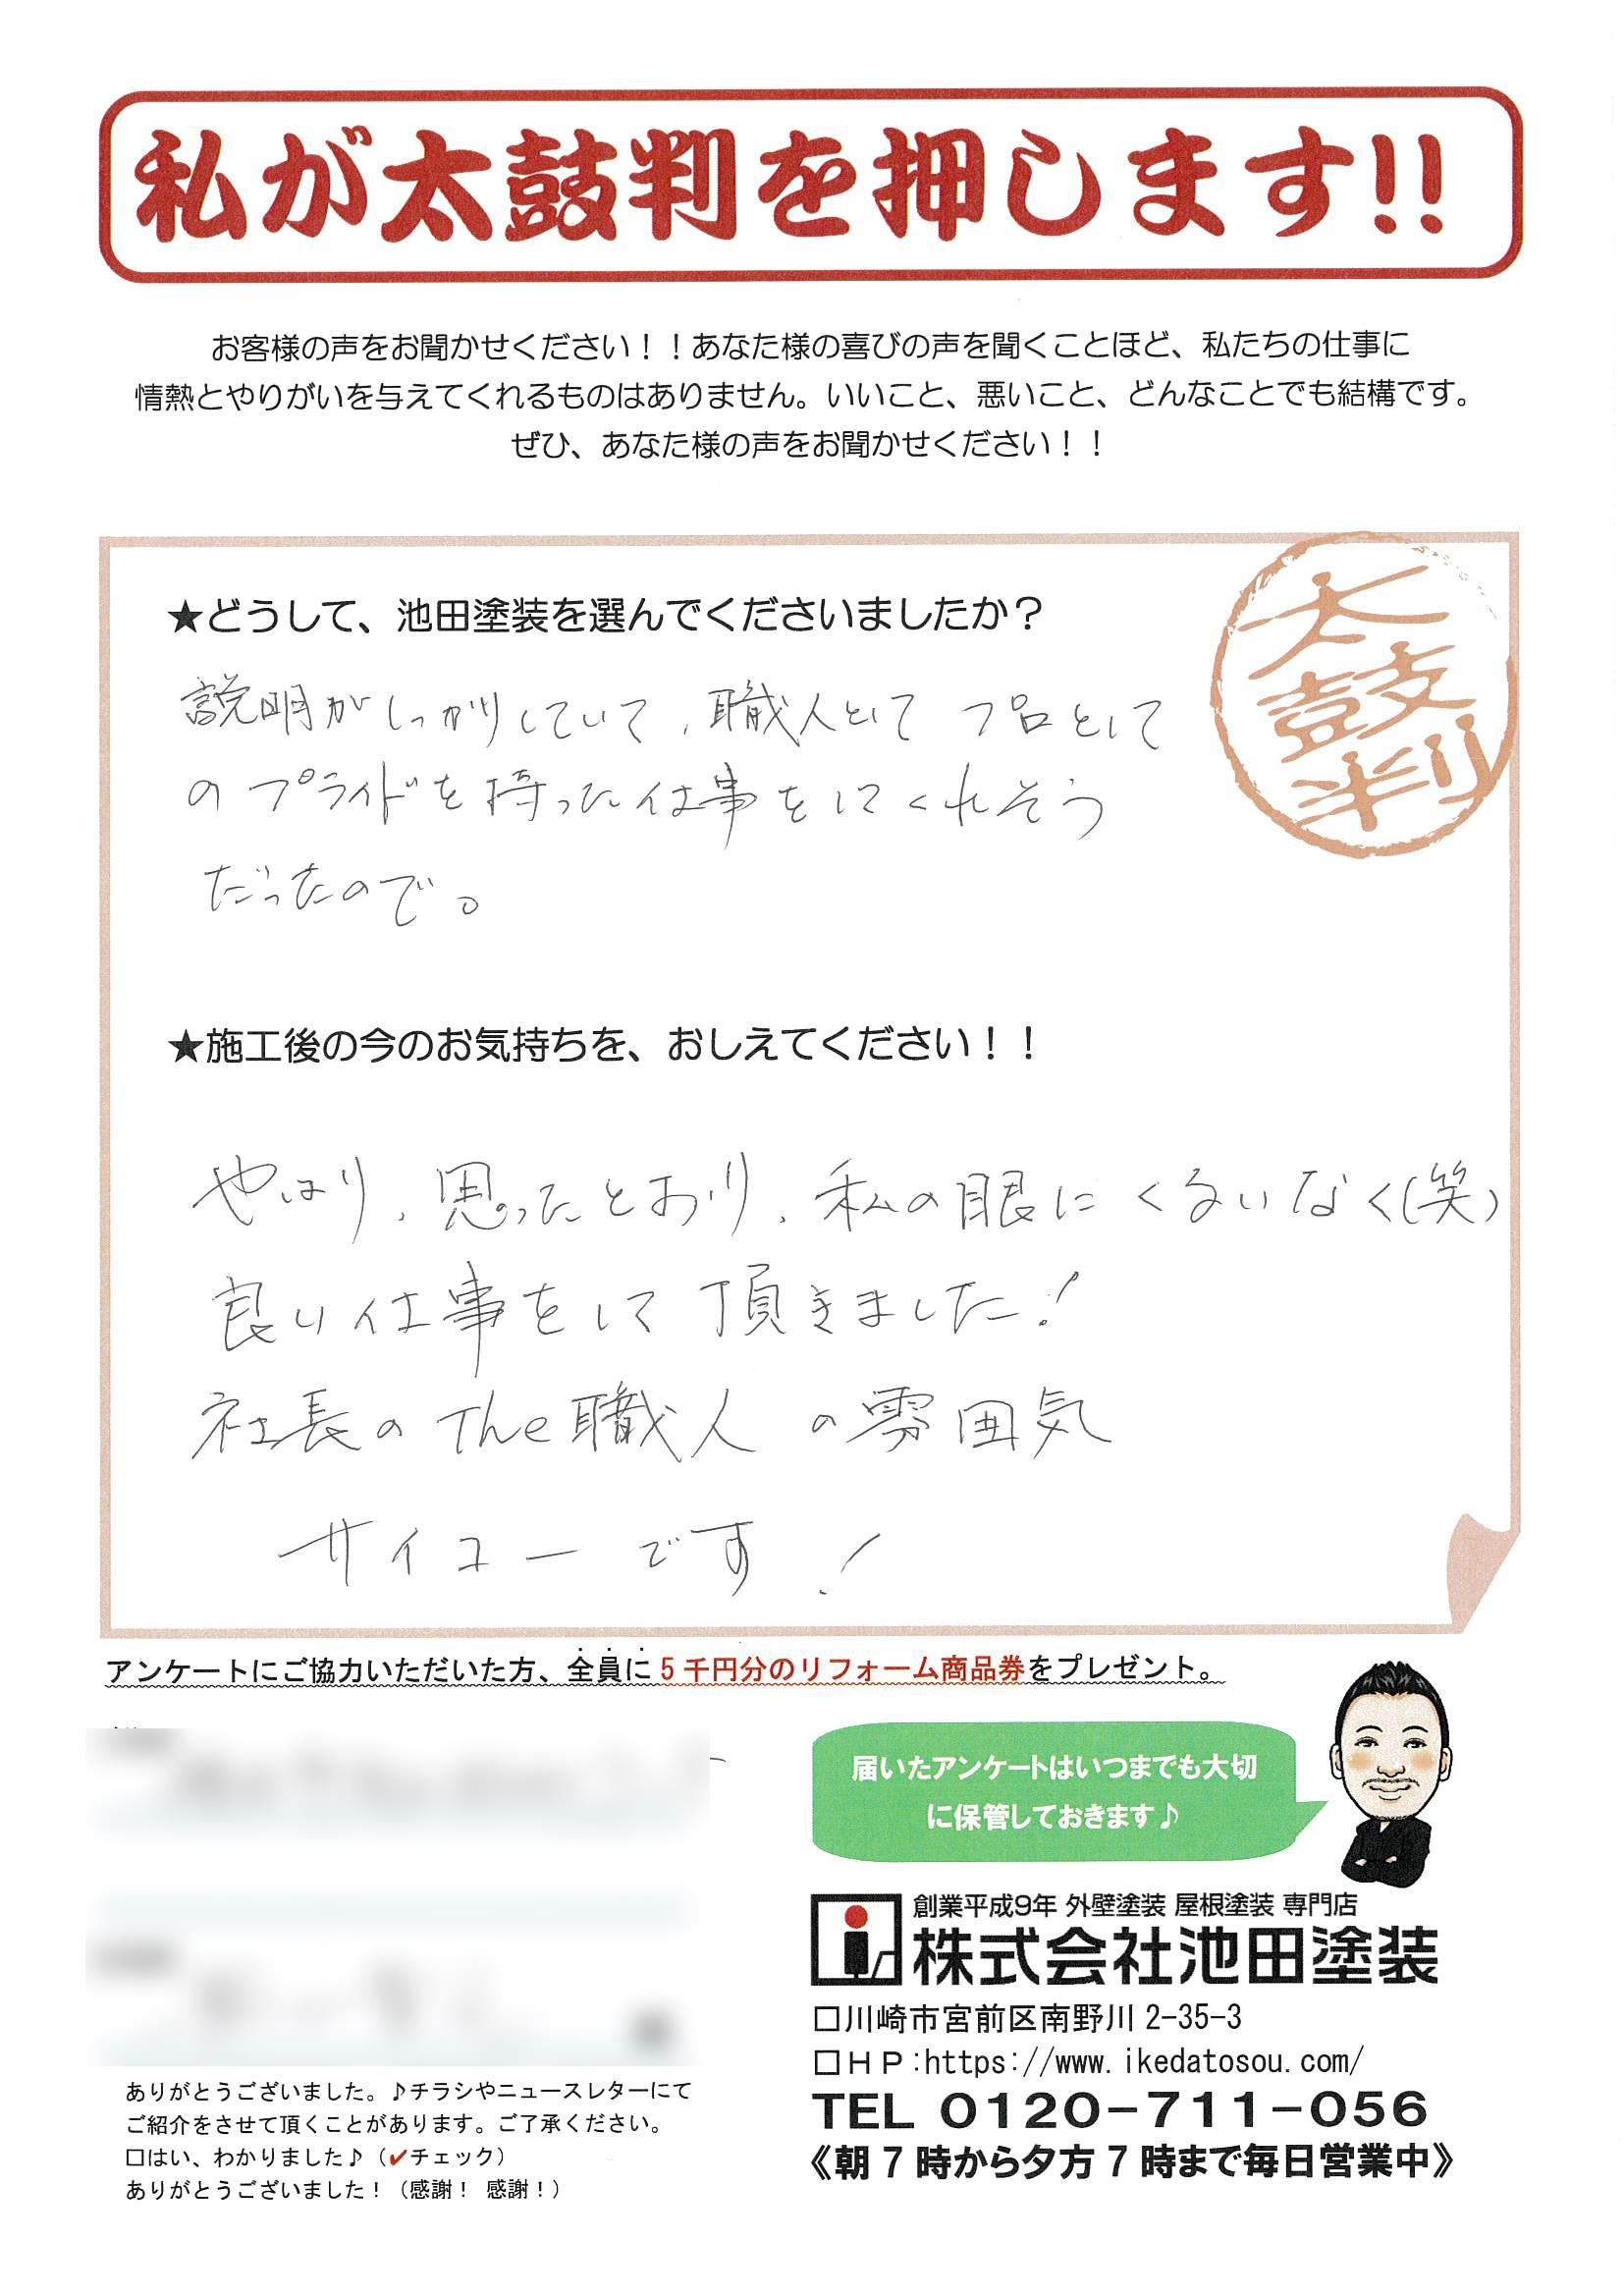 私が太鼓判を押します!!
お客様の声をお聞かせください！！あなた様の喜びの声を聞くことほど、私たちの仕事に
情熱とやりがいを与えてくれるものはありません。いいこと、悪いこと、どんなことでも結構です。
ぜひ、あなた様の声をお聞かせください！！
太鼓判
★どうして、池田塗装を選んでくださいましたか？
説明がしっかりしていて、職人として プロとして
のプライドを持った仕事をしてくれそう
だったので。
★施工後の今のお気持ちを、おしえてください！！
やはり、思ったとおり、私の眼にくるいなく(笑)
良い仕事をして頂きました！
社長のThe職人の雰囲気
サイコーです！
アンケートにご協力いただいた方、全員に５千円分のリフォーム商品券をプレゼント。
届いたアンケートはいつまでも大切
に保管しておきます♪
創業平成9年 外壁塗装 屋根塗装 専門店
株式会社池田塗装
□川崎市宮前区南野川 2-35-3
□ＨＰ:https://www.ikedatosou.com/
TEL 0120-711-056
《朝７時から夕方７時まで毎日営業中》
ありがとうございました。♪チラシやニュースレターにて
ご紹介をさせて頂くことがあります。ご了承ください。
□はい、わかりました♪（✔チェック）
ありがとうございました！（感謝！ 感謝！）